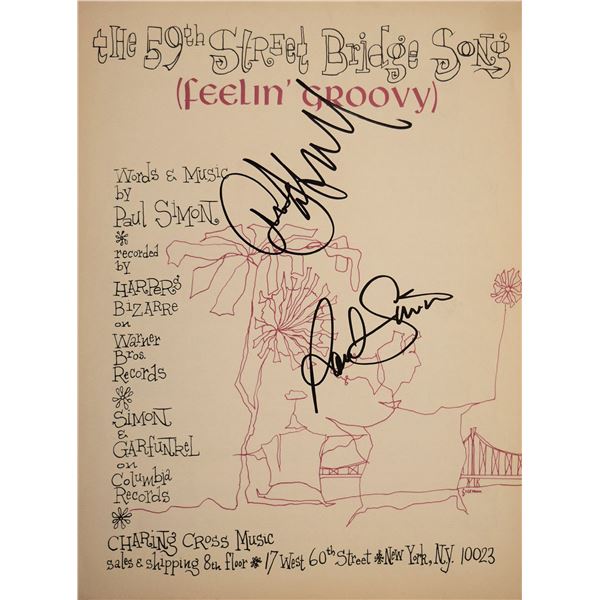 the 59th Street Bridge Song
(feelin' groovy)
Words & Music
by
Paul Simon
*
recorded
by
Harpers
Bizarre
on
Warner
Bros.
Records
*
Simon
&
Garfunkel
on
Columbia
Records
*
Charing Cross Music
sales & shipping 8th floor * 17 West 60th Street * New York, N.Y. 10023
Paul Simon